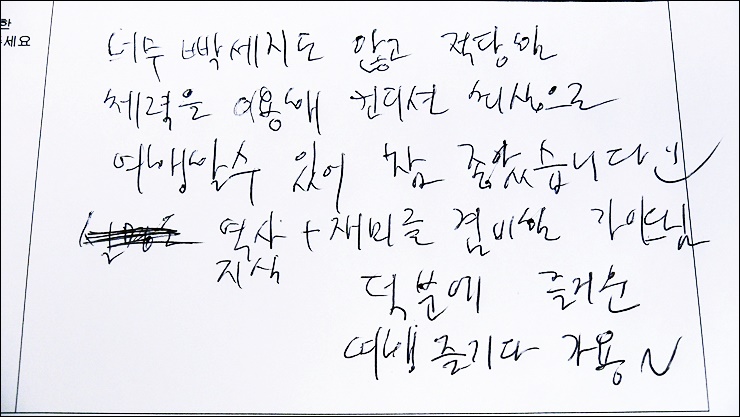 한
세요
너무 빡세지도 않고 적당한
체력을 이용해 컨디션 최상으로
여행할수 있어 참 좋았습니다 :)
역사 + 재미를 겸비한 가이드님
지식
덕분에 즐거운
여행 즐기다 가용~